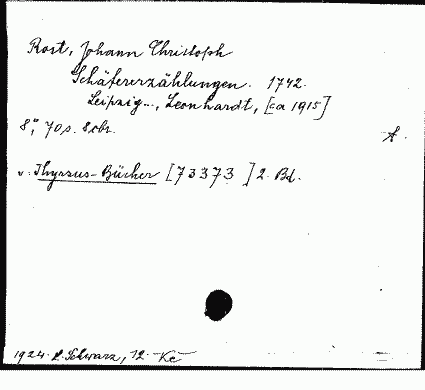 Rost, Johann Christoph
Schäfererzählungen. 1742.
Leipzig..., Leonhardt, [ca 1915]
8°, 70 s. 8 obr.
A.
v. Thyrsus-Bücher [73373] 2. Bd.
1924. L. Schwarz, 12. Kč